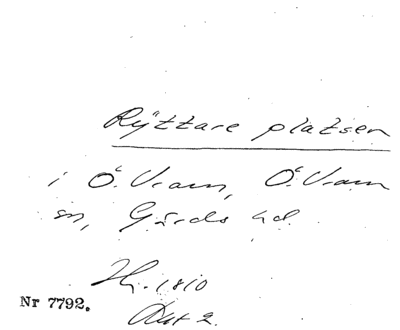 Rÿttare platsen
i Ö. Vram, Ö. Vram
sn, Gärds hd.
Hj. 1810
Nr 7792.